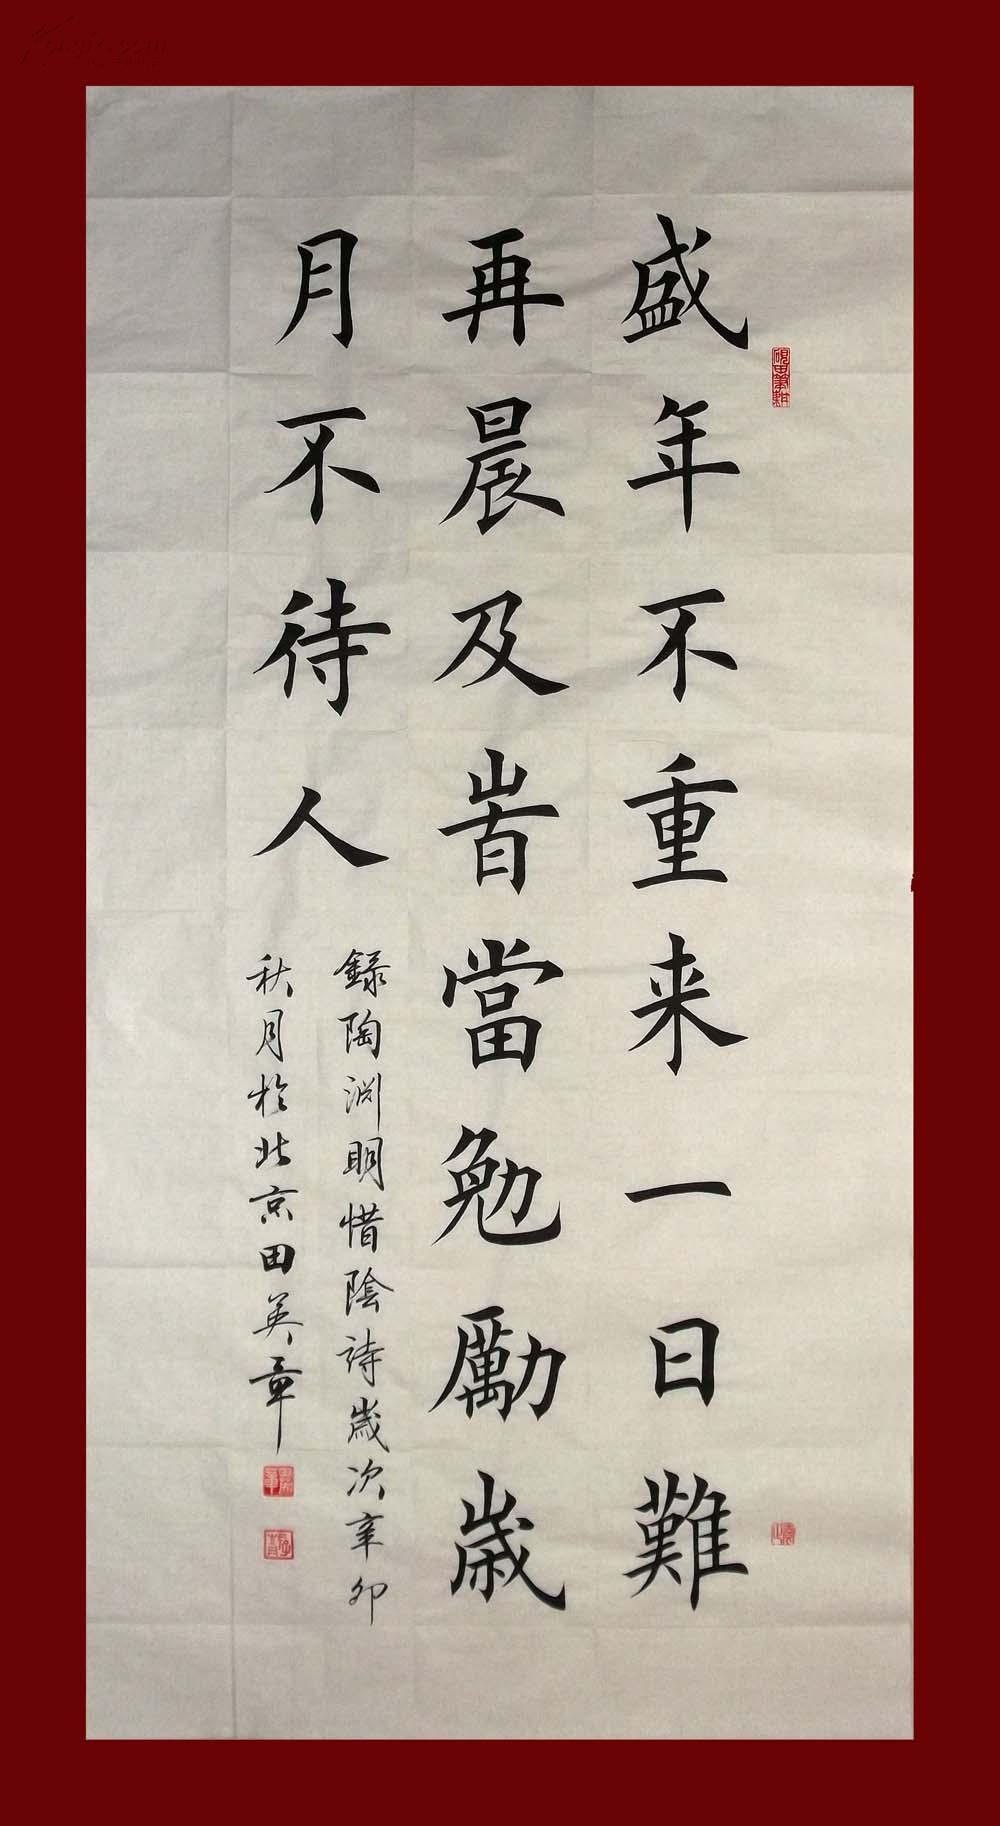 盛年不重来一日難
再晨及旹當勉勵歳
月不待人
録陶渊明惜陰詩歲次辛卯
秋月於北京田英章